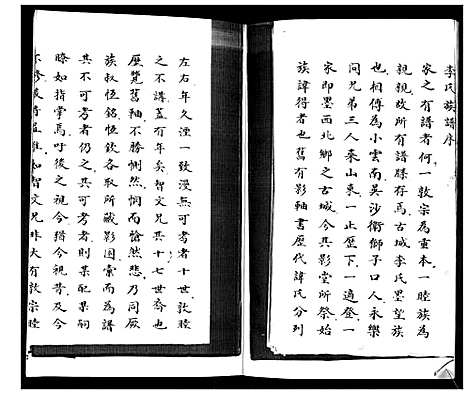 李氏族譜序
家之有譜者何一敦宗為重本一睦族為
親親故所有譜牒存焉古城李氏墨望族
也相傳為小雲南吳沙衛獅子口人永樂
間兄弟三人來山東一止歷下一適登一
家即墨西北鄉之古城今其影堂所祭始
族諱得者也舊有影軸書歷代諱氏分列
左右年久湮一致漫無可考者十世敦睦
之不講蓋有年矣智文兄其十七世裔也
歷覽舊軸不勝惻然惻而愴然悲乃同厥
族叔恆銘恆欽各取所藏影圖彙而為譜
其不可考者仍之其可考者則某配某嗣
瞭如指掌焉吁後之視今猶今視昔及今
不修後將益難知智文兄非大有敦宗睦